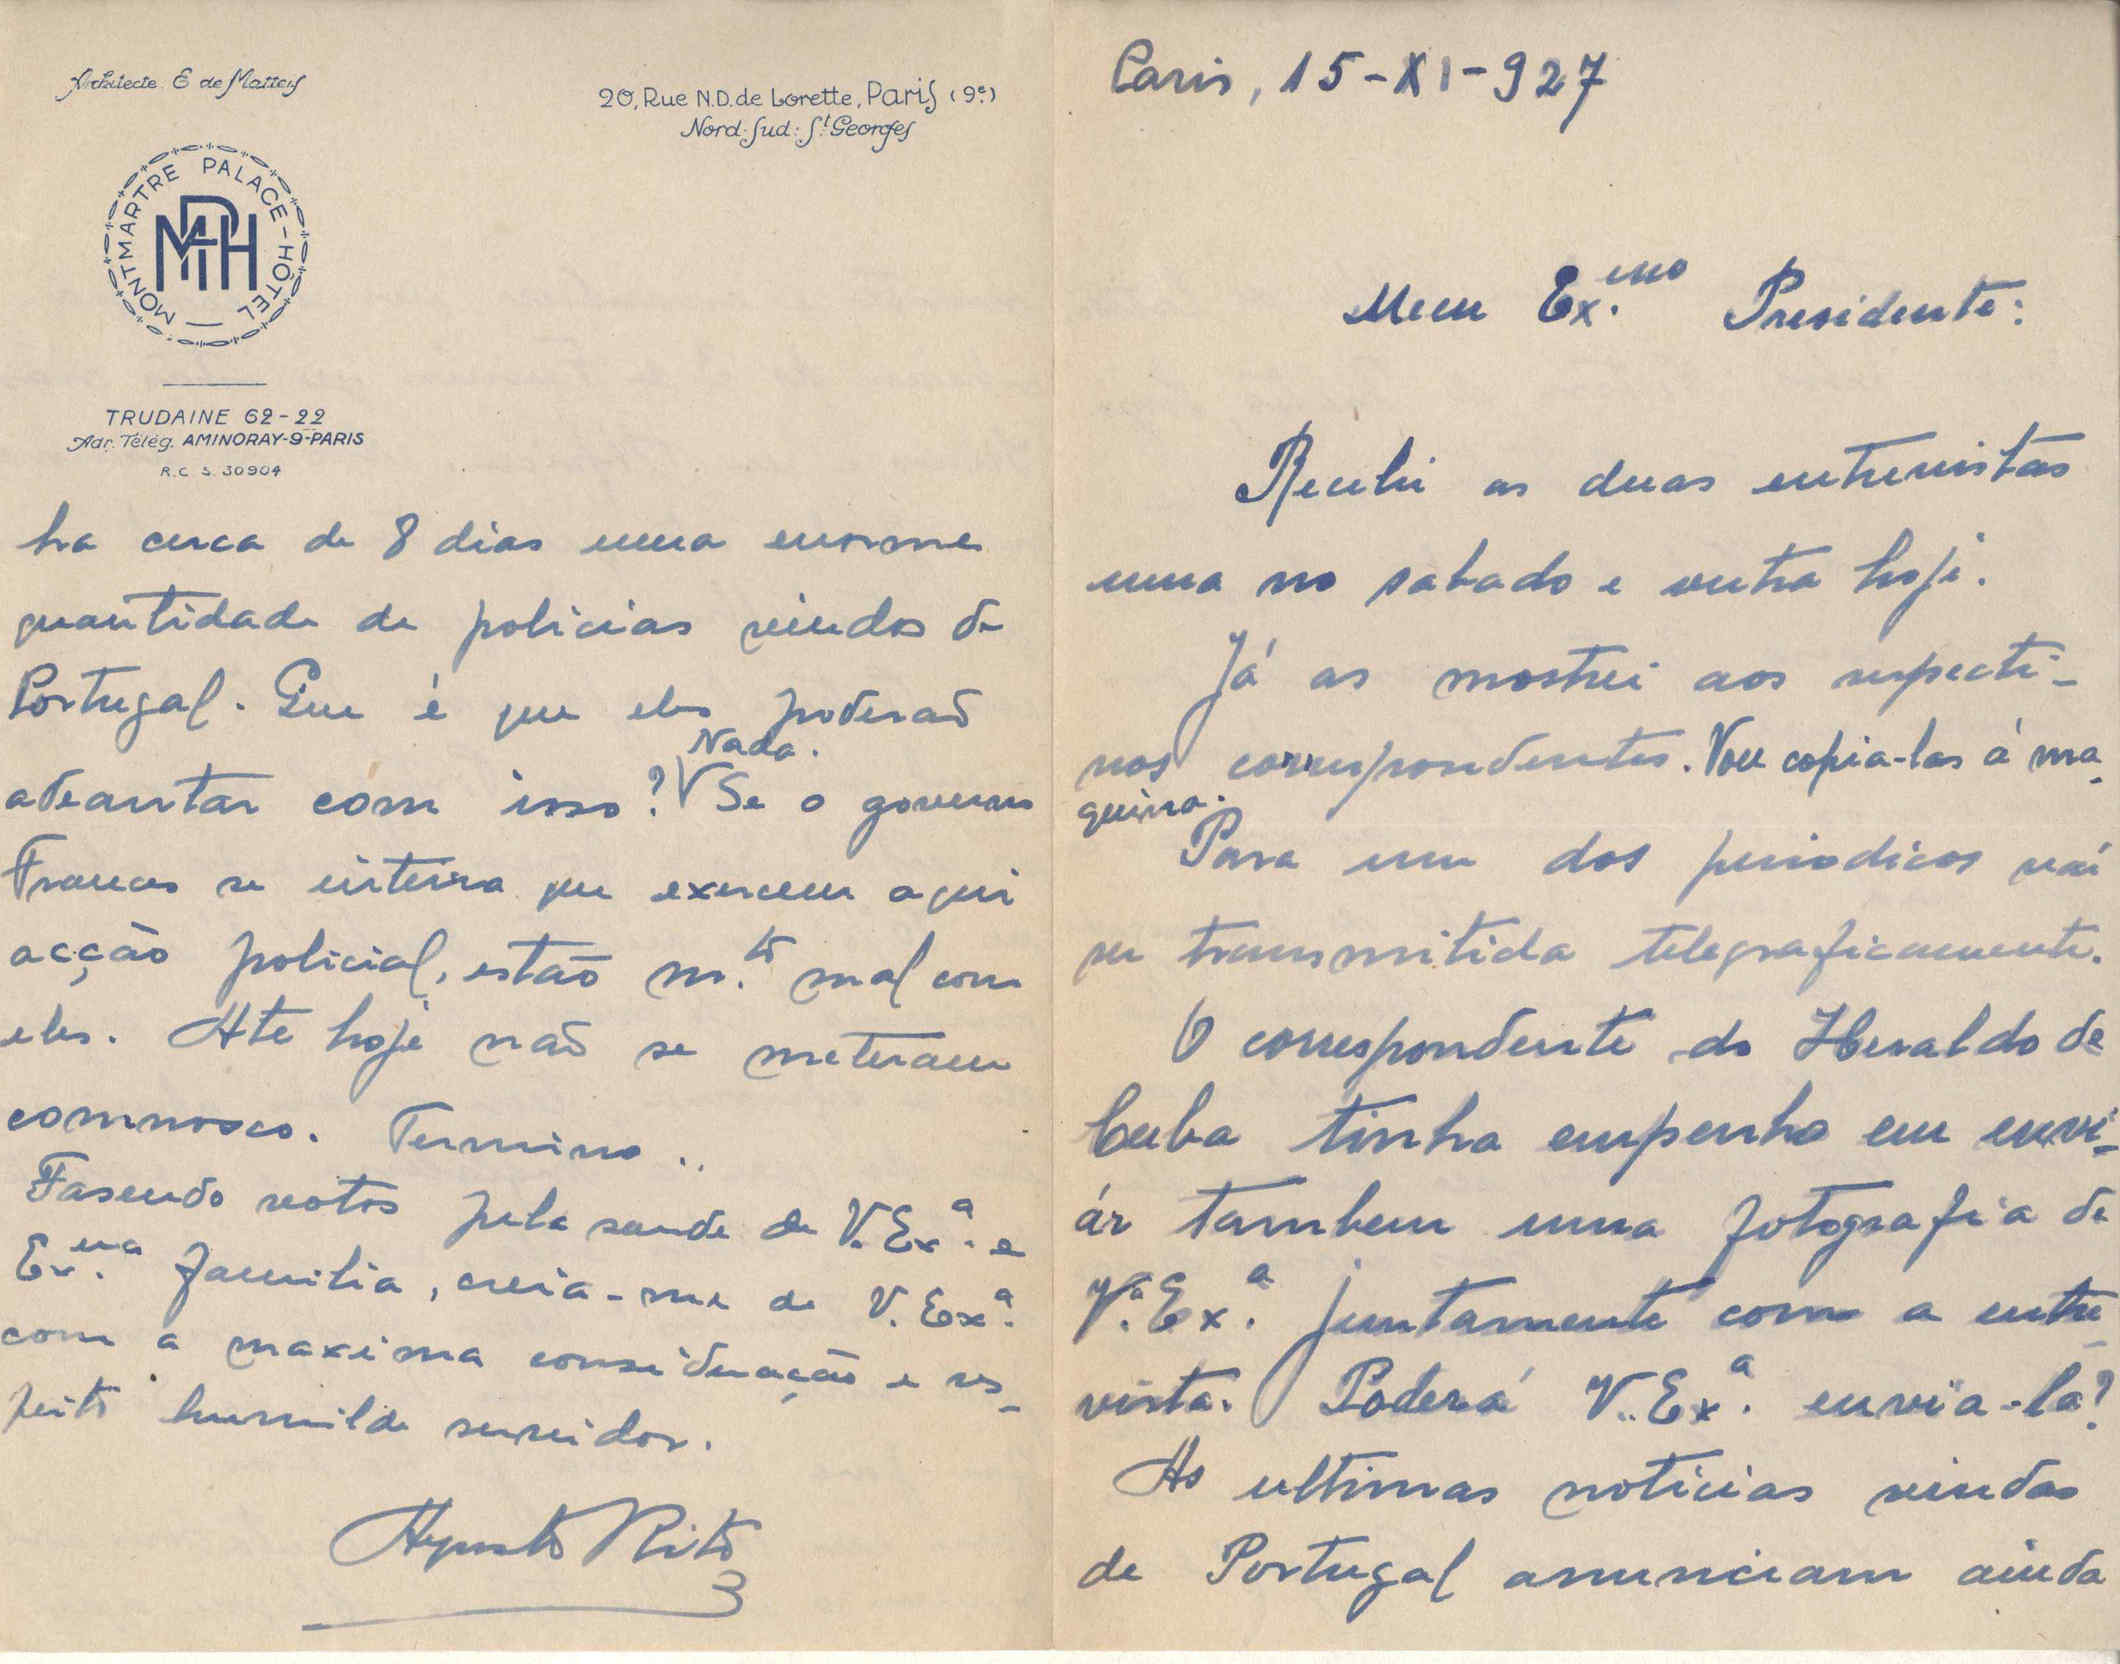 Paris, 15-XI-927
Meu Ex.mo Presidente:
Recebi as duas entrevistas
uma no sabado e outra hoje.
Já as mostrei aos respecti-
vos correspondentes. Vou copia-las á ma-
quina.
Para um dos periodicos vai
ser transmitida telegraficamente.
O correspondente do Heraldo de
Cuba tinha empenho em envi-
ár tambem uma fotografia de
V.ª Ex.ª juntamente com a entre-
vista. Poderá V. Ex.ª envia-la?
As ultimas noticias vindas
de Portugal anunciam ainda
Architecte E de Matteis
20, Rue N.D. de Lorette, Paris (9e)
Nord-Sud: St Georges
MONTMARTRE PALACE-HÔTEL
MPH
TRUDAINE 62-22
Adr. Télég. AMINORAY-9-PARIS
R.C. S. 30904
ha cerca de 8 dias uma enorme
quantidade de policias vindos de
Portugal. Que é que eles poderaõ
adeantar com isso? Nada. Se o governo
Frances se inteira que exercem aqui
acção policial, estão m.to mal com
eles. Ate hoje naõ se meteram
comnosco. Termino..
Fasendo votos pela saude de V. Ex.ª e
Ex.ma familia, creia-me de V. Ex.ª
com a maxima consideração e res-
peito humilde servidor.
Agusto Rito